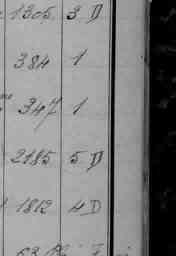 1305 3 D
384 1
347 1
2185 5 D
1812 4 D